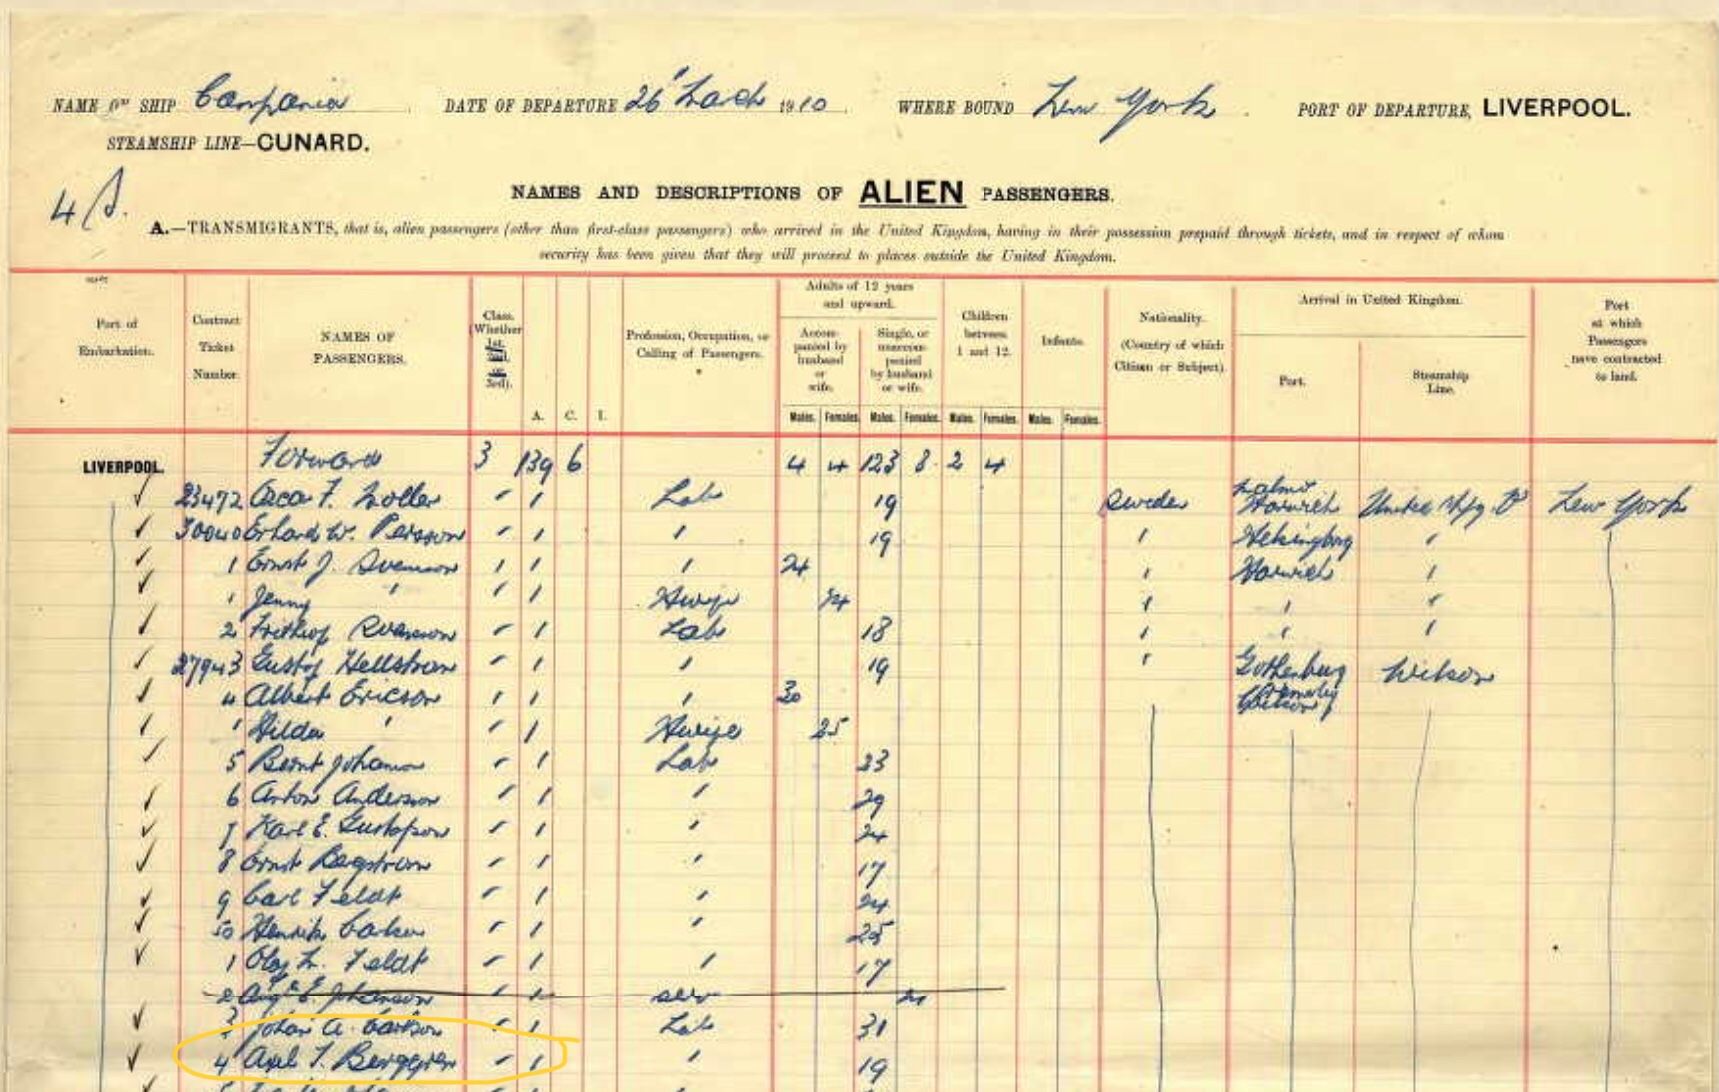 NAME OF SHIP Campania DATE OF DEPARTURE 26 March 1910 WHERE BOUND New York PORT OF DEPARTURE, LIVERPOOL.
STEAMSHIP LINE—CUNARD.
NAMES AND DESCRIPTIONS OF ALIEN PASSENGERS.
A.—TRANSMIGRANTS, that is, alien passengers (other than first-class passengers) who arrived in the United Kingdom, having in their possession prepaid through tickets, and in respect of whom
security has been given that they will proceed to places outside the United Kingdom.
Port of Embarkation. Contract Ticket Number. NAMES OF PASSENGERS. Class. (Whether 1st, 2nd, or 3rd). A. C. I. Profession, Occupation, or Calling of Passengers. Adults of 12 years and upward. Accompanied by husband or wife. Males. Females. Single, or unaccompanied by husband or wife. Males. Females. Children between 1 and 12. Males. Females. Infants. Males. Females. Nationality. (Country of which Citizen or Subject). Arrival in United Kingdom. Port. Steamship Line. Port at which Passengers have contracted to land.
LIVERPOOL. Forward 3 139 6 4 4 123 8 2 4
23472 Oscar F. Moller " 1 Lab 19 Sweden Malmo Harwich United New York
30040 Erhard W. Persson " 1 " 19 " Helsingborg "
1 Ernst J. Svenson " 1 " 24 " Harwich "
" Jenny " " 1 Hwife 24 " " "
2 Frithiof Svenson " 1 Lab 18 " " "
27943 Gustaf Hellstrom " 1 " 19 " Gothenburg Wilson
4 Albert Ericson " 1 " 30 Grimsby
" Hilda " " 1 Hwife 25
5 Bernt Johanson " 1 Lab 23
6 Anton Anderson " 1 " 29
7 Karl E. Gustafson " 1 " 24
8 Ernst Bergstrom " 1 " 17
9 Carl Feldt " 1 " 24
50 Henrik Carlson " 1 " 25
1 Olaf L. Feldt " 1 " 17
2 E. Johanson " 1 serv 21
3 Johan A. Carlson " 1 Lab 31
4 Axel T. Berggren " 1 " 19